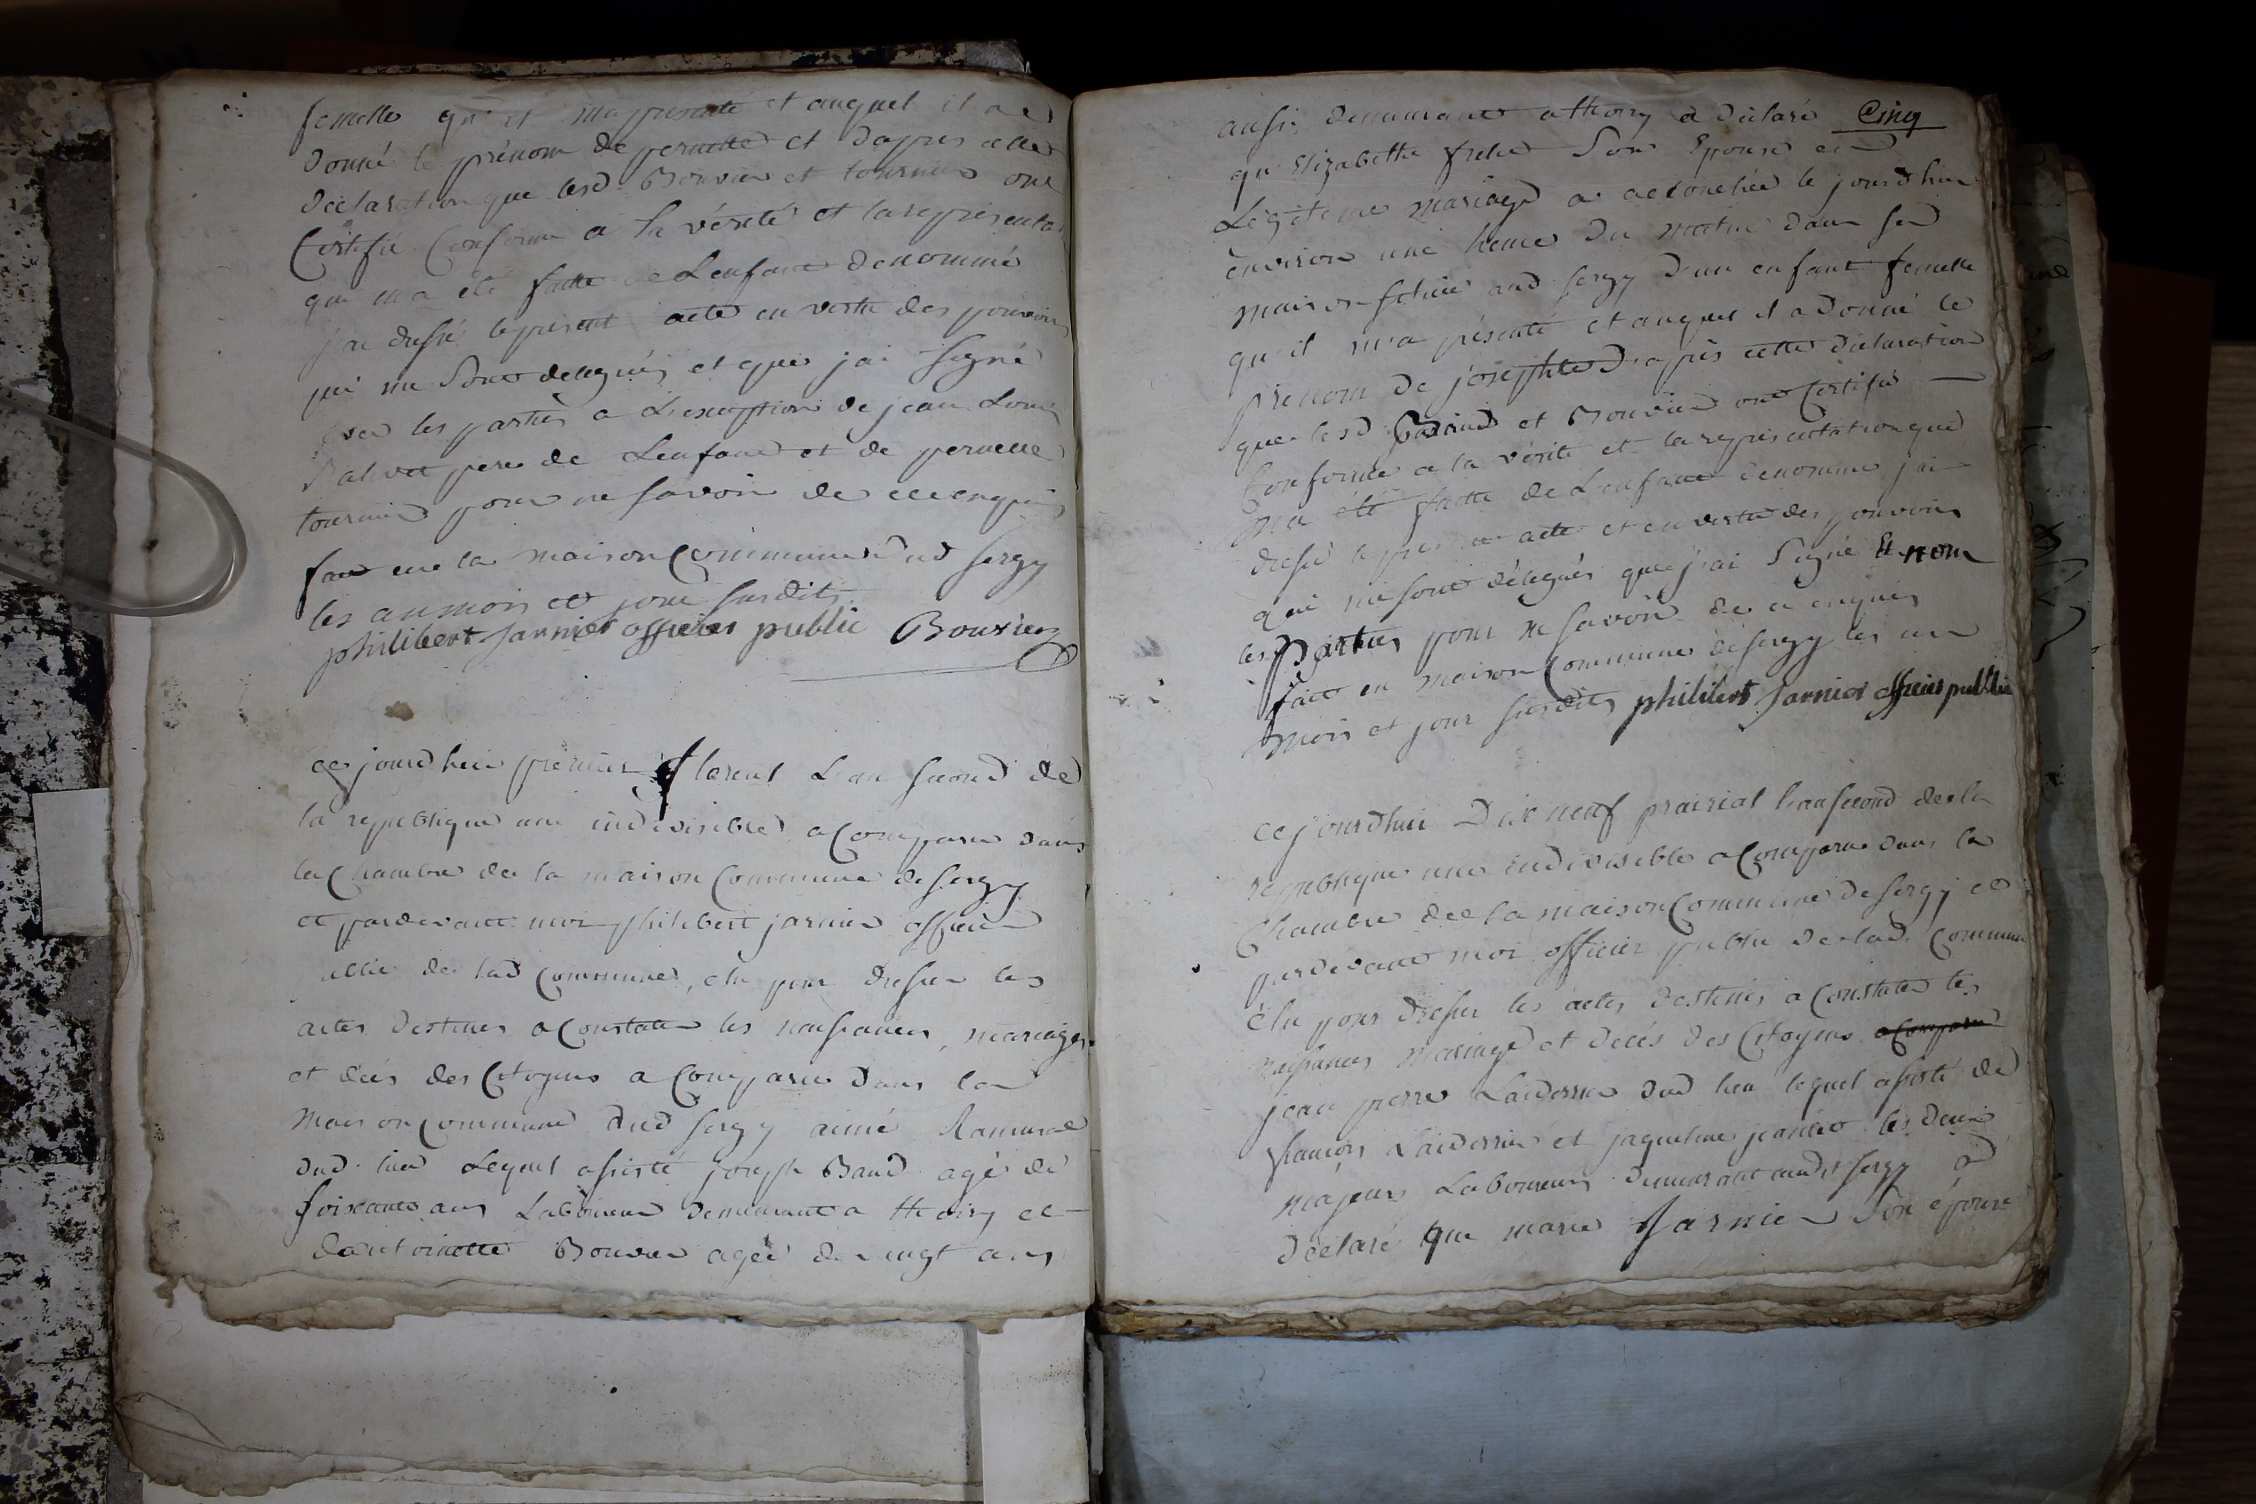 femelle qu'il m'a presenté et auquel il a
donné le prénom de pernette et dapres cette
déclaration que lesd. Bouvier et tournier ont
Certifié Conforme a la vérité et la représentation
qui m'a été faitte de Lenfant denommé
j'ai dressé le present acte en vertu des pouvoirs
qui me sont delegués et que jai signé
avec les parties a L'exception de jean Louis
pere de Lenfant et de pernette
tournier pour ne savoir de ce enquis
fait en la maison Commune dud sergy
les an mois et jour susdits
philibert Jarnier officier public Bouvier
cejourdhuy premier floreal L'an second de
la republique une indivisible a Comparu dans
la Chambre de la maison Commune de sergy
et pardevant moi philibert jarnier officier
public de lad Commune, elu pour dresser les
actes destinés a Constater les naissances, mariages
et décès des Citoyens a Comparu dans la
maison Commune dud sergy aimé
dud. lieu Lequel assisté joseph Baud agé de
soixante ans Laboureur demeurant a thoiry et
dantoinette Bouvier agée de vingt ans
Cinq
aussi demeurant a thoiry a déclaré
qu'Elizabeth son Epouse en
Légitime mariage a accouchée le jourdhui
environ une heure du matin dans sa
maison scituée aud. sergy d'un enfant femelle
qu'il m'a présenté et auquel il a donné le
prénom de josephte d'après cette déclaration
que lesd Baud et Bouvier ont Certifié
Conforme a la vérité et la représentation que
m'a été faitte de Lenfant denommé jai
dressé le present acte et en vertu des pouvoirs
qui me sont délegués que j'ai signé Et non
les Parties pour ne savoir de ce enquis
fait en maison Commune de sergy les an
mois et jour susdits philibert Jarnier officier public
cejourdhui Dixneuf prairial L'an second de la
republique une indivisible a Comparu dans la
Chambre de la maison Commune de sergy et
pardevant moi officier public de lad. Commune
élu pour dresser les actes destinés a Constater les
naissances mariage et décés des Citoyens a Comparu
jean pierre dud lieu lequel assisté de
françois et jaqueline les deux
majeurs Laboureurs demeurant audit sergy a
déclaré que marie Jarnier son épouse